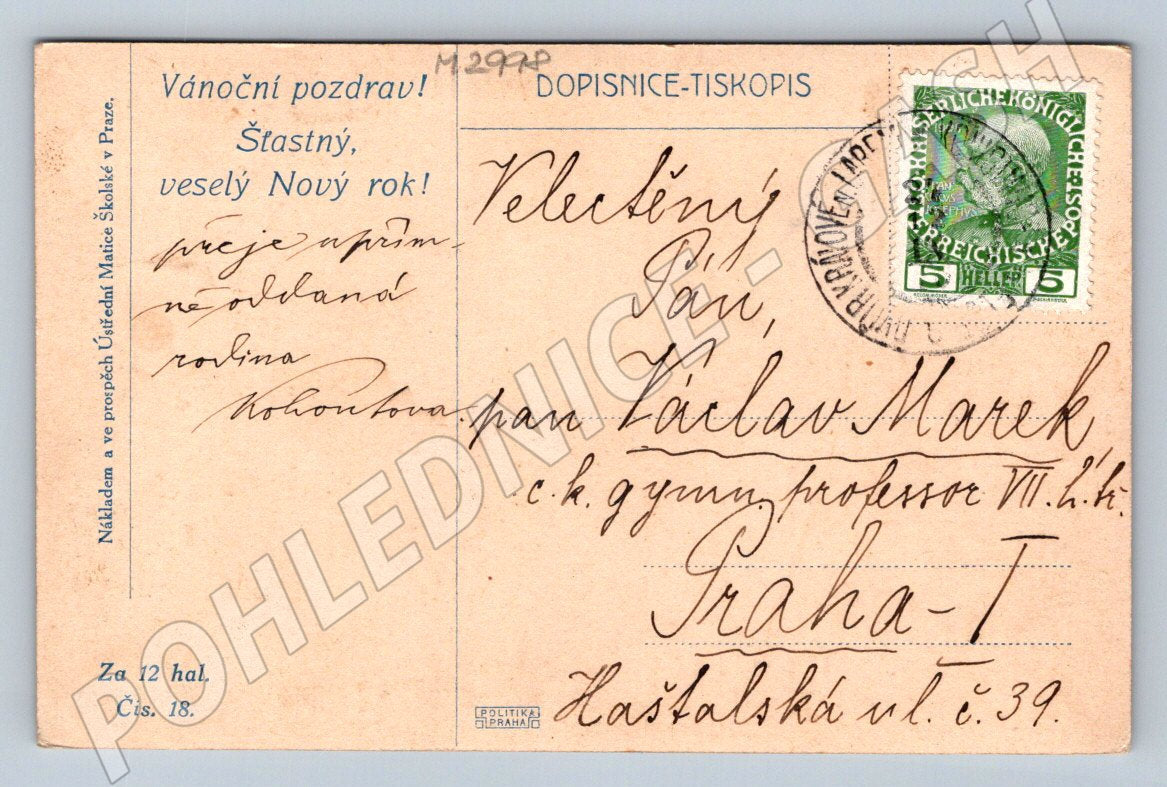 M 2998
Vánoční pozdrav!
Šťastný,
veselý Nový rok!
přeje upřím-
ně oddaná
rodina
Kohoutova.
Nákladem a ve prospěch Ústřední Matice Školské v Praze.
Za 12 hal.
Čís. 18.
DOPISNICE-TISKOPIS
KAISERLICHE KÖNIGLICHE
ÖSTERREICHISCHE POST
5 HELLER 5
DVŮR KRÁLOVÉ n. LABEM
Velectěný
Pán,
pan Václav Marek,
c. k. gymn. professor VII. h. tř.
Praha - I
Haštalská ul. č. 39.
POLITIKA
PRAHA
POHLEDNICE -